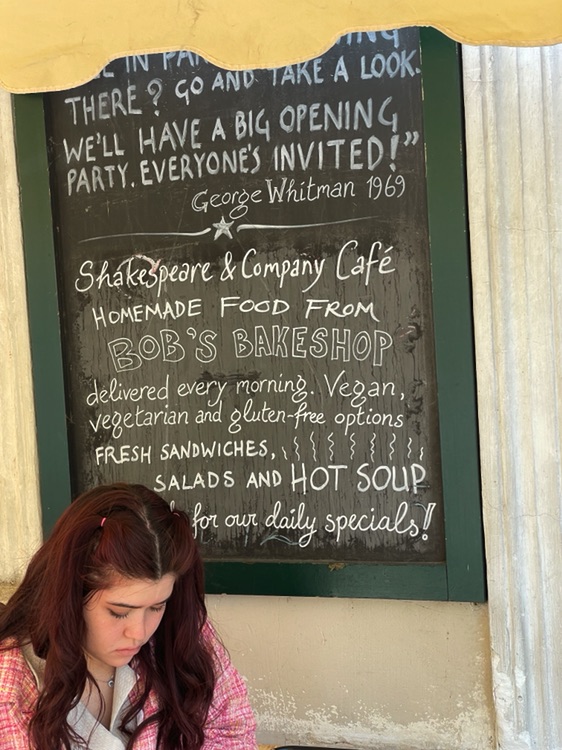 IN
THERE? GO AND TAKE A LOOK.
WE'LL HAVE A BIG OPENING
PARTY. EVERYONE'S INVITED!”
George Whitman 1969
Shakespeare & Company Café
HOMEMADE FOOD FROM
BOB'S BAKESHOP
delivered every morning. Vegan,
vegetarian and gluten-free options
FRESH SANDWICHES,
SALADS AND HOT SOUP
for our daily specials!